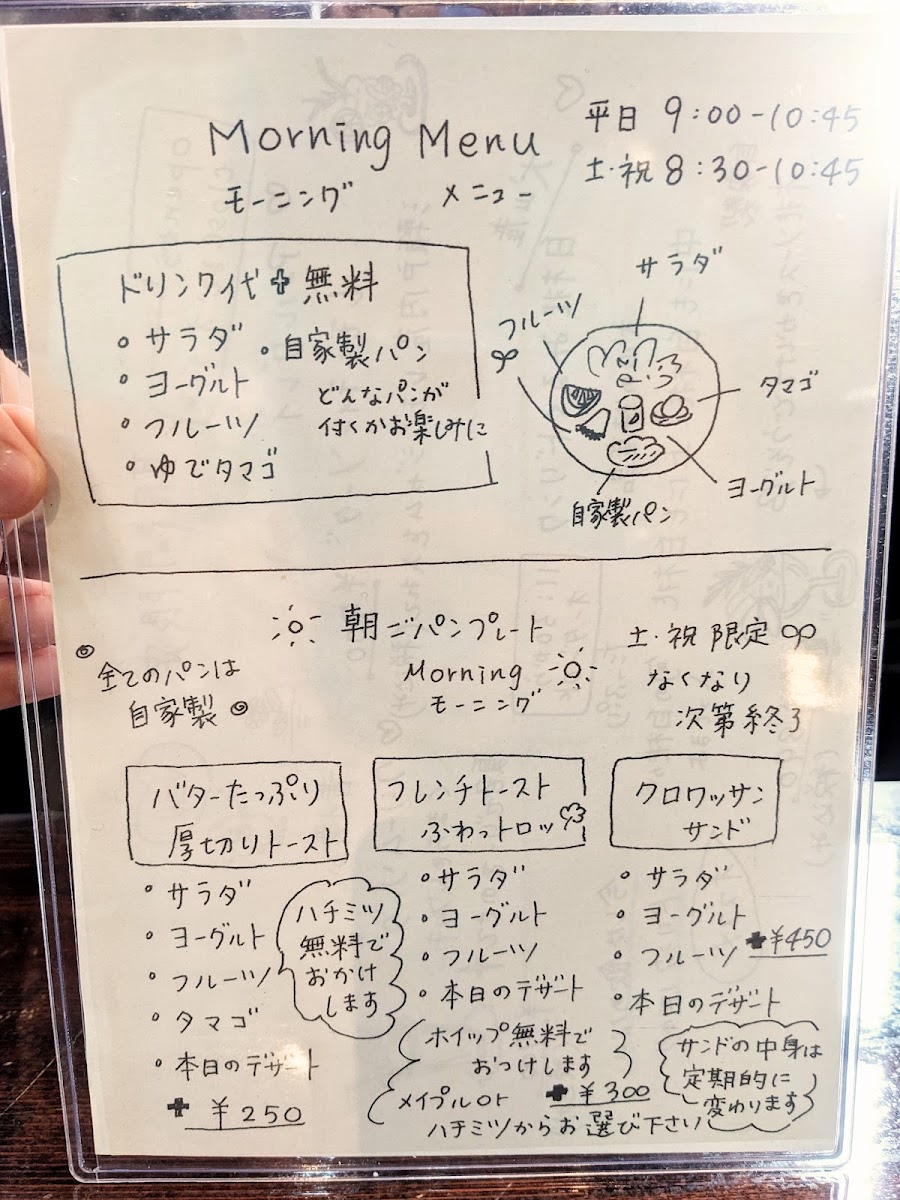 Morning Menu
モーニング メニュー
平日 9:00-10:45
土・祝 8:30-10:45
ドリンク代+無料
・サラダ
・ヨーグルト
・フルーツ
・ゆでタマゴ
・自家製パン
どんなパンが
付くかお楽しみに
サラダ
フルーツ
タマゴ
ヨーグルト
自家製パン
朝ごパンプレート
Morning
モーニング
全てのパンは
自家製
土・祝 限定
なくなり
次第終了
バターたっぷり
厚切りトースト
・サラダ
・ヨーグルト
・フルーツ
・タマゴ
・本日のデザート
+ ¥250
ハチミツ
無料で
おかけ
します
フレンチトースト
ふわっトロッ
・サラダ
・ヨーグルト
・フルーツ
・本日のデザート
ホイップ無料で
おつけします
+ ¥300
メイプルor
ハチミツからお選び下さい
クロワッサン
サンド
・サラダ
・ヨーグルト
・フルーツ
+¥450
・本日のデザート
サンドの中身は
定期的に
変わります